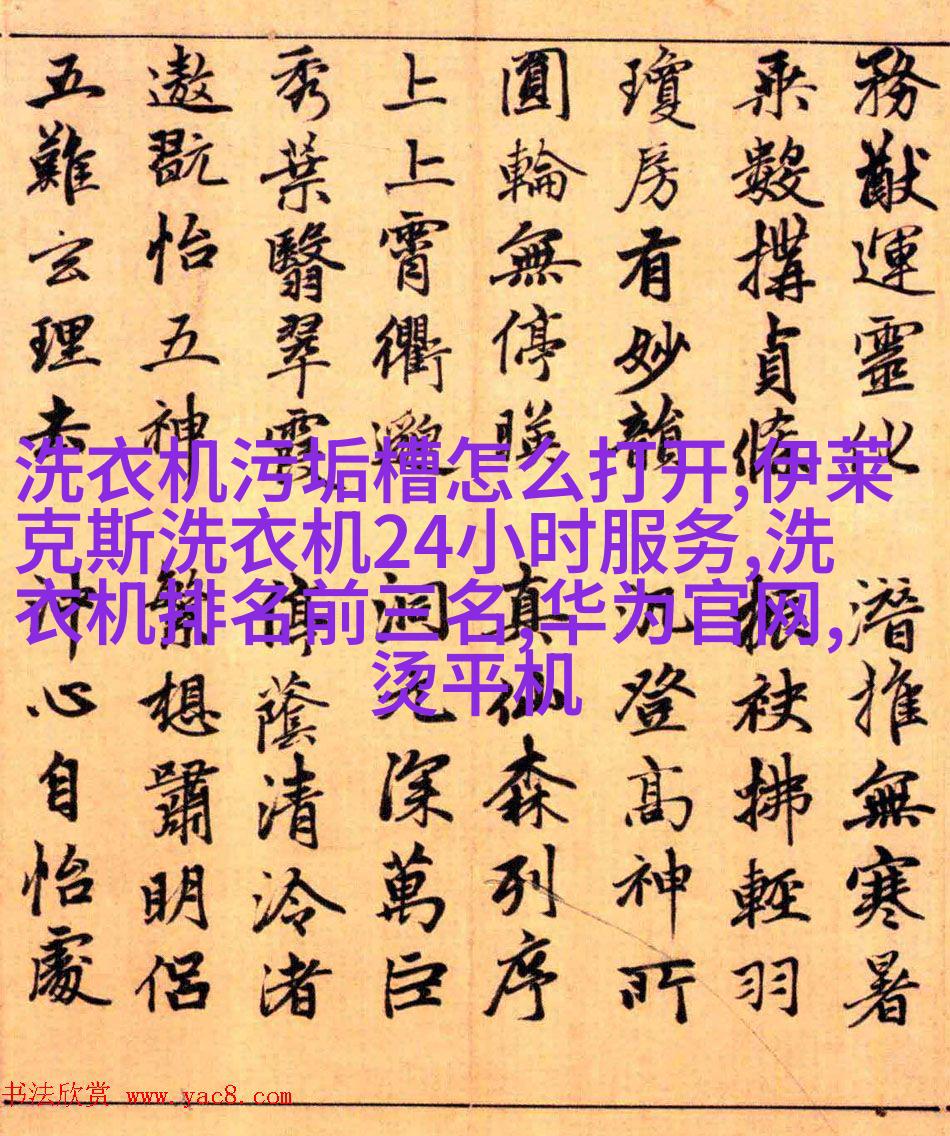 務猷運靈化潛推無寒暑
乘數搆貞條振袂拂輕羽
瓊房有妙韻汎登高神所
圓輪無停暎真仙森列序
上上霄衢邈洞深萬巨
秀葉翳翠霞蔭清泠渚
遨翫怡五神想嘯明侶
五難玄理去冲心自怡處
洗衣机污垢槽怎么打开,伊莱
克斯洗衣机24小时服务,洗
衣机排名前三名,华为官网,
烫平机
书法欣赏 www.yac8.com